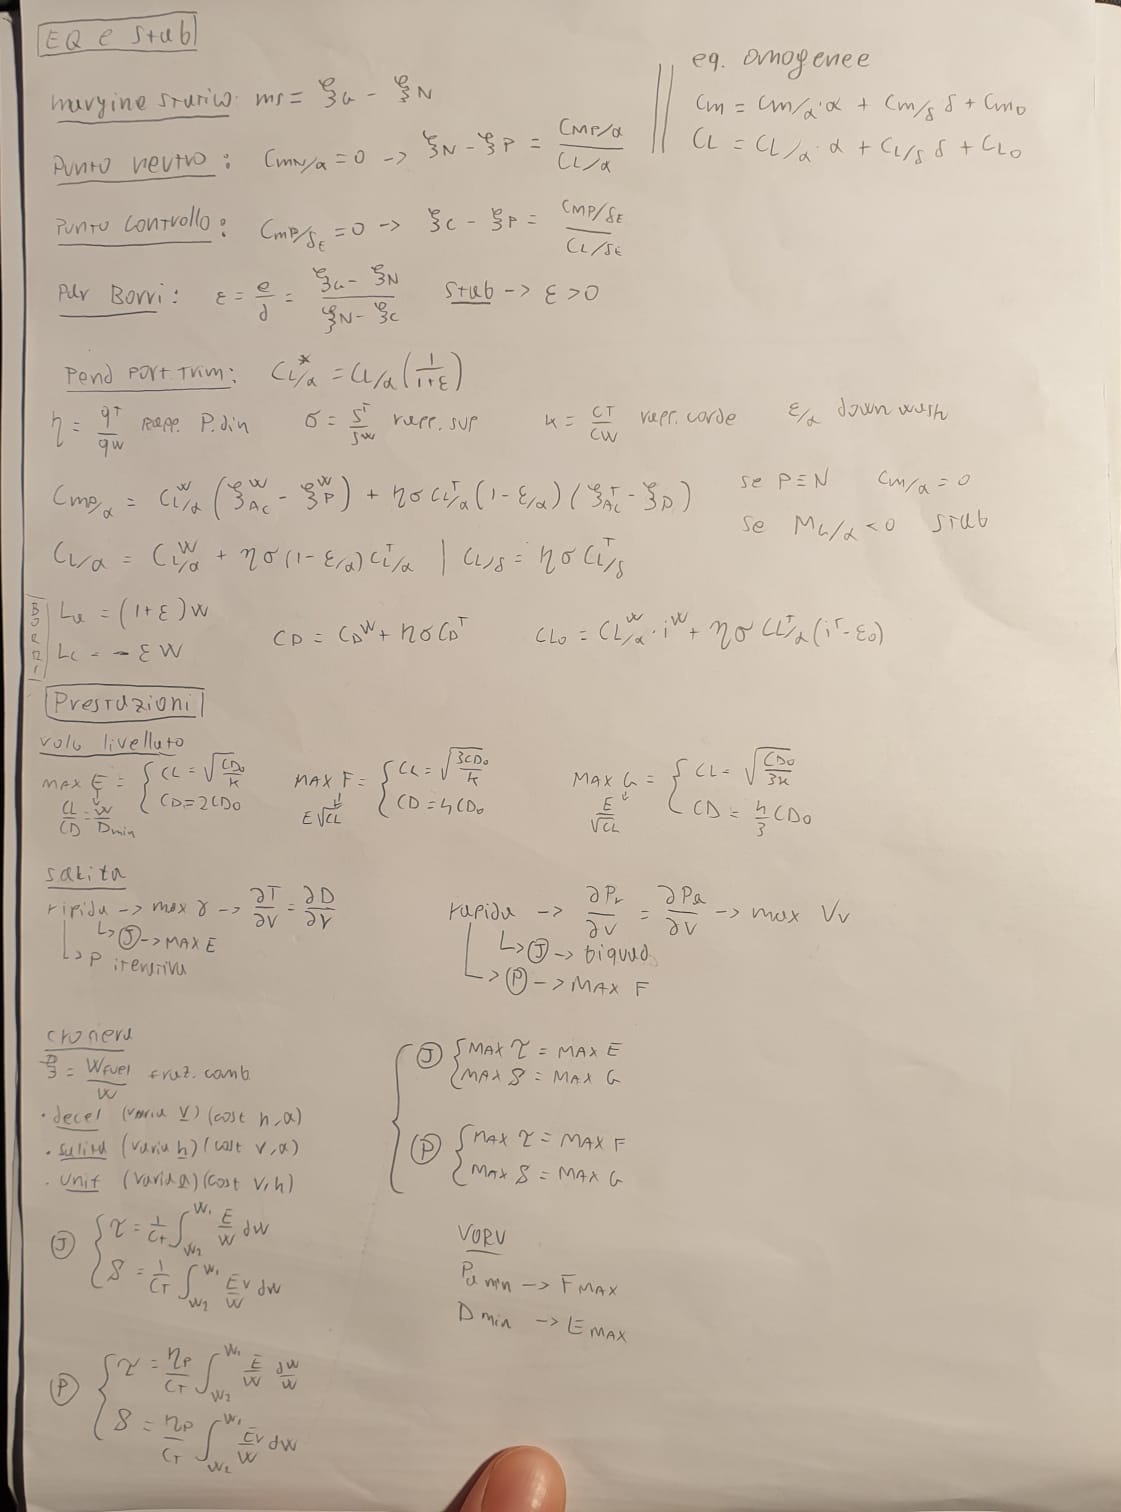 EQ e stab
margine statico: ms = ξG - ξN
Punto neutro: CmN/α = 0 -> ξN - ξP = CMP/α / CL/α
Punto controllo: CmP/δE = 0 -> ξC - ξP = CMP/δE / CL/δE
Par Borri: ε = e/d = (ξG - ξN) / (ξN - ξC) stab -> ε > 0
eq. omogenee
Cm = Cm/α·α + Cm/δ δ + Cm0
CL = CL/α·α + CL/δ δ + CL0
Pend port. trim: CL/α* = CL/α (1/(1+ε))
η = qT/qW rapp. P.din σ = ST/SW rapp. sup κ = CT/CW rapp. corde ε/α down wash
CmP/α = CL/α^W (ξAC^W - ξP^W) + ησ CL/α^T (1 - ε/α) (ξAC^T - ξP) se P≡N Cm/α = 0
se MG/α < 0 stab
CL/α = CL/α^W + ησ (1 - ε/α) CL/α^T | CL/δ = ησ CL/δ^T
BORRI
Lα = (1+ε)W
LC = - εW
CD = CD^W + ησ CD^T
CL0 = CL/α^W · i^W + ησ CL/α^T (i^T - ε0)
Prestazioni
volo livellato
MAX E = { CL = √(CD0/K)
CD = 2CD0
CL/CD = W/Dmin
MAX F = { CL = √(3CD0/K)
CD = 4CD0
E√CL
MAX G = { CL = √(CD0/3K)
CD = 4/3 CD0
E/√CL
salita
ripida -> max γ -> ∂T/∂V = ∂D/∂V
↳ J -> MAX E
↳ P iterativa
rapida -> ∂Pr/∂V = ∂Pa/∂V -> max Vv
↳ J -> biquad.
↳ P -> MAX F
crociera
= Wfuel/W fraz. comb.
· decel (varia V) (cost h, α)
· salita (varia h) (cost V, α)
· unif (varia α) (cost V, h)
J { MAX τ = MAX E
MAX S = MAX G
P { MAX τ = MAX F
MAX S = MAX G
J { τ = 1/CT ∫W2^W1 E/W dW
S = 1/CT ∫W2^W1 EV/W dW
VORV
Pa min -> FMAX
Dmin -> EMAX
P { τ = ηP/CT ∫W2^W1 E/W dW/W
S = ηP/CT ∫W2^W1 EV/W dW